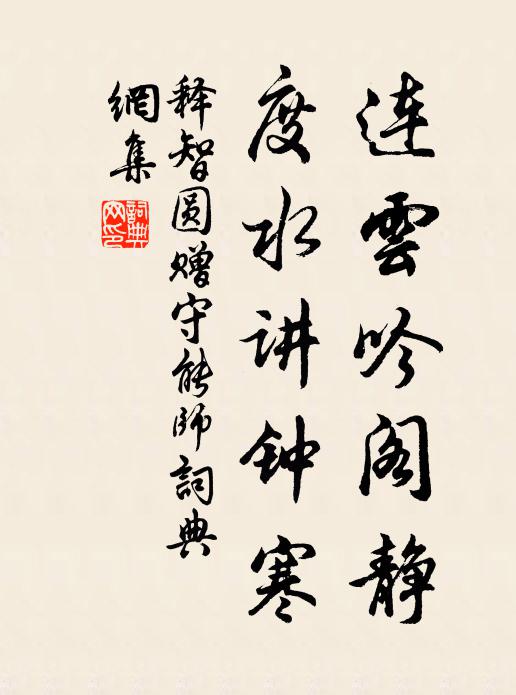 连雲吟阁静
度水讲钟寒
释智圆赠守能师詞典
網集
詞典
网印